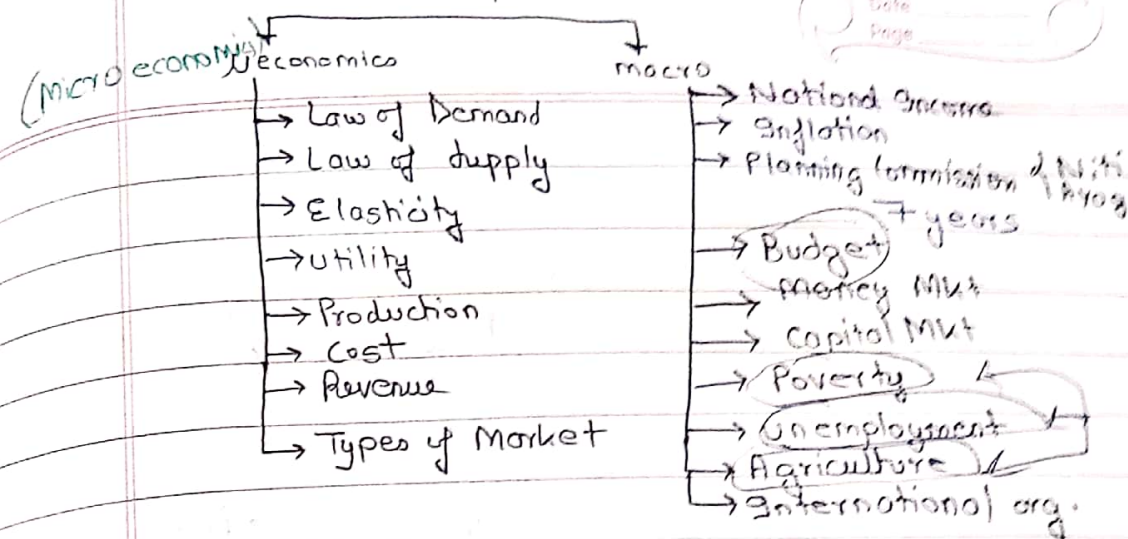 Date
Page
(Micro economic)
economics
macro
Law of Demand
Law of Supply
Elasticity
Utility
Production
Cost
Revenue
Types of Market
National Income
Inflation
Planning Commission & Niti Ayog
7 years
Budget
Money Mkt
Capital Mkt
Poverty
Unemployment
Agriculture
International org.